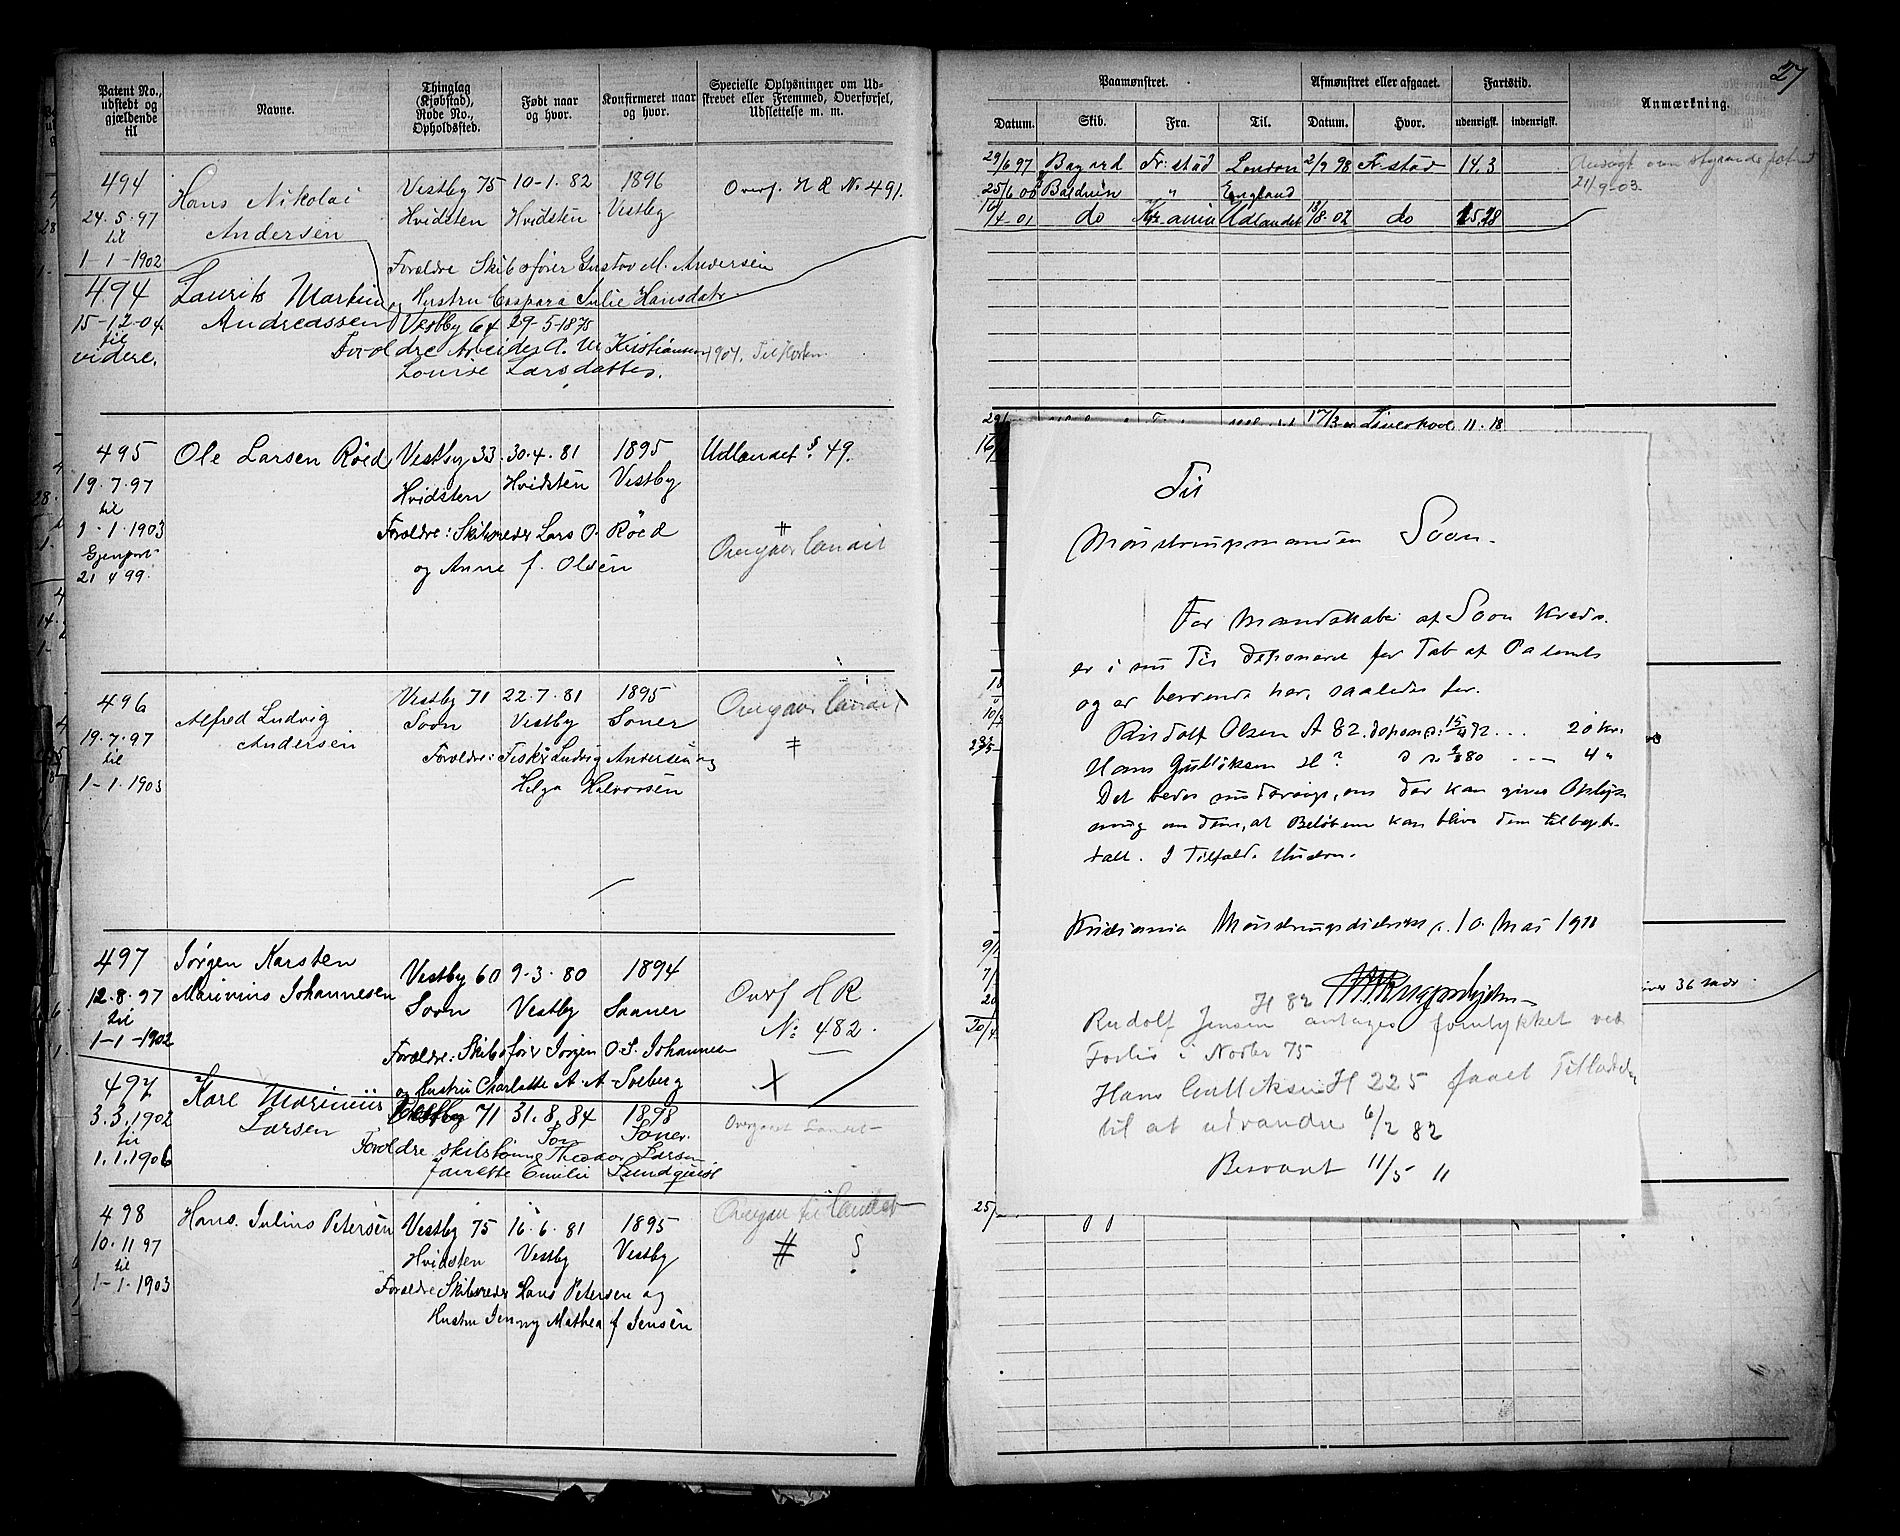 Patent No., udstedt og gjældende til
Navne.
Thinglag (Kjøbstad), Rode No., Opholdssted.
Født naar og hvor.
Konfirmeret naar og hvor.
Specielle Oplysninger om Udskrevet eller Fremmed, Overførsel, Udslettelse m. m.
494
24.5.97
til
1-1-1902
Hans Nikolai
Andersen
Vestby 75 10-1.82 1896
Hvidsten Hvidsten Vestby
Overf. H R No 491.
Forældre Skibsfører Gustav M. Andersen
og Hustru Caspara Julie Hansdatr.
494
15-12-04
til
videre.
Laurits Martin
Andreassen
Vestby 64 29-5-1875
Forældre Arbeider A. M. Kristiansen
Louise Larsdatter.
1904. Til Horten
495
19.7.97
til
1-1.1903
Gjenpart
21 4 99.
Ole Larsen Røed
Vestby 33 30.4.81 1895
Hvidsten Hvidsten Vestby
Udlandet § 49.
Forældre: Skibsreder Lars O. Røed
og Anne f. Olsen
#
496
19.7.97
til
1-1.1903
Alfred Ludvig
Andersen
Vestby 71 22.7.81 1895
Soon Vestby Soner
Forældre: Fisker Ludvig Andersen og
Helga Halvorsen
497
12.8.97
til
1-1-1902
Jørgen Karsten
Marinius Johannesen
Vestby 60 9.3.80 1894
Soon Vestby Saaner
Overf H R
No 482.
Forældre: Skibsfører Jørgen O.S. Johannesen
og Hustru Charlotte A. A. Soeberg
497
3.3.1902
til
1.1.1906
Karl Marinius
Larsen
Vestby 71 31.8.84 1898
Son Soner.
Forældre skibstømmer Theodor Larsen
Emilie Lundquist
Overgaaet Landet
498
10.11 97
til
1-1.1903
Hans Julius Petersen
Vestby 75 16.6.81 1895
Hvidsten Vestby Vestby
til landet
#
Forældre Skibsreder Hans Petersen og
Hustru Jenny Mathea f Jensen
27
Paamønstret.
Afmønstret eller afgaaet.
Fartstid.
Anmærkning.
Datum. Skib. Fra. Til. Datum. Hvor. udenrigsk. indenrigsk.
29/6 97 Fr:stad London 2/9 98 Fr.stad 14.3
25/6 00 Baldwin " England
4.01 do Kr.ania Udlandet 13/8-02 do 15.28
21/9-03
17/3 Liverpool 11.18
36 mdr.
Til
Mønstringsmanden Soon.
For Mandskabet af Soon Kreds
er i sin Tid deponeret for Tab af Patents
og er beroende her, saaledes for.
Rudolf Olsen A 82. depon. 15/ 72 ... 20 kr.
Hans Gulliksen H? 80 .... 4 "
Det bedes undersøgt, om der kan gives Oplysning
om dem, at Beløbene kan blive dem tilbagebetalt.
I Tilfælde
Kristiania Mønstringsdistrikt, 10. Mai 1911
H 82
Rudolf Jensen antages forulykket ved
Forlis i Novbr 75
Hans Gulliksen H 225 faaet Tilladelse
til at udvandre 6/2 82
Besvaret 11/5 11